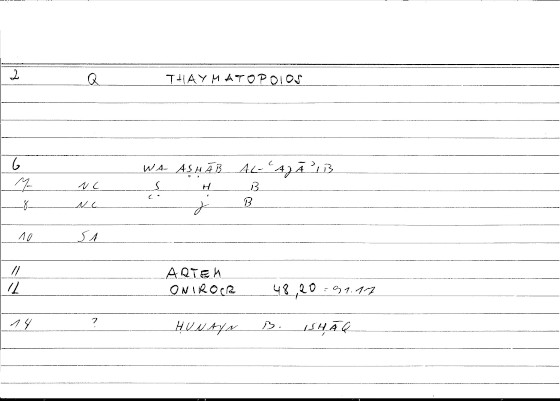 2 Q THAYMATOPOIOS
6 WA- AṢḤĀB AL-ʿAǧĀʾIB
7 NC Ṣ Ḥ B
8 NC ʿ ǧ B
10 SA
11 ARTEM
12 ONIROCR 48,20 = 91.17
14 ? HUNAYN B. ISḤĀQ